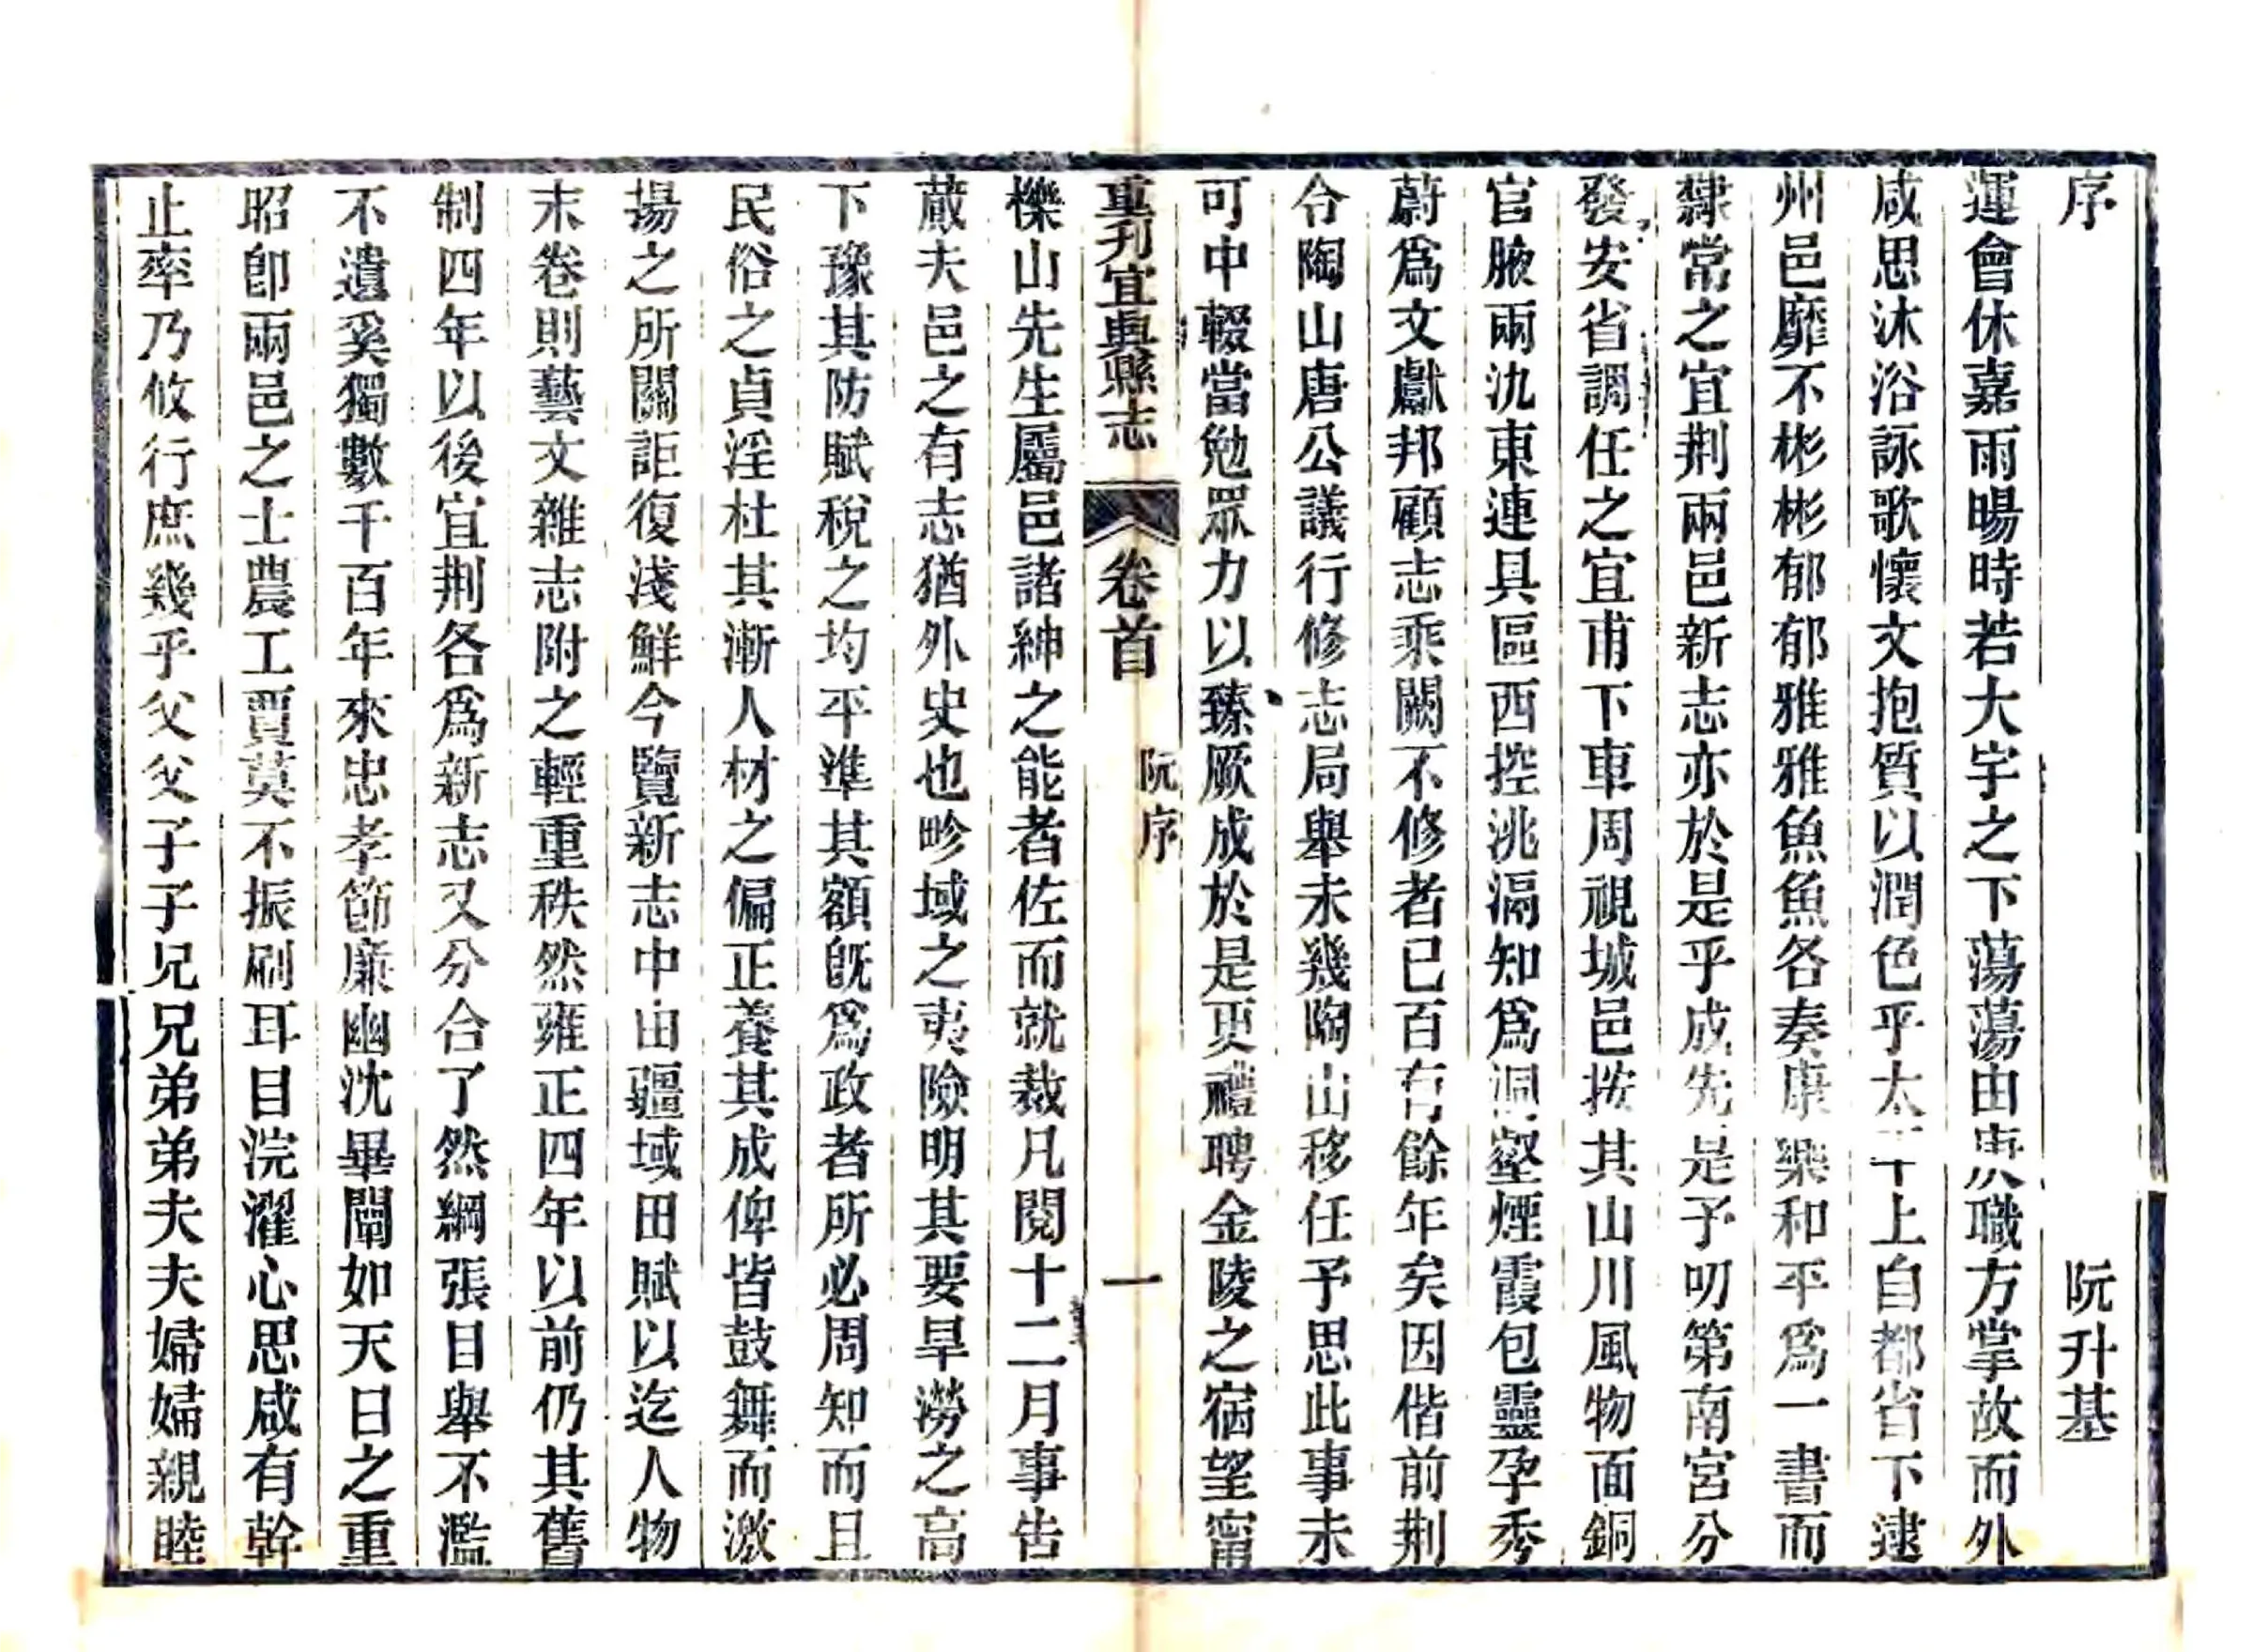 序 阮升基
運會休嘉雨暘時若大宇之下蕩蕩由庚職方掌故而外
咸思沐浴詠歌懷文抱質以潤色乎太平上自都省下逮
州邑靡不彬彬郁郁雅雅魚魚各奏康樂和平爲一書而
隸常之宜荆兩邑新志亦於是乎成先是予叨第南宮分
發安省調任之宜甫下車周視城邑按其山川風物面銅
官腋兩氿東連具區西控洮滆知爲洞壑煙霞包靈孕秀
蔚爲文獻邦顧志乘闕不修者已百有餘年矣因偕前荆
令陶山唐公議行修志局舉未幾陶山移任予思此事未
可中輟當勉眾力以臻厥成於是更禮聘金陵之宿望甯
重刊宜興縣志 卷首 阮序 一
櫟山先生屬邑諸紳之能者佐而就裁凡閱十二月事告
蕆夫邑之有志猶外史也畛域之夷險明其要旱澇之高
下豫其防賦稅之均平準其額旣爲政者所必周知而且
民俗之貞淫杜其漸人材之偏正養其成俾皆鼓舞而激
揚之所關詎復淺鮮今覽新志中由疆域田賦以迄人物
末卷則藝文雜志附之輕重秩然雍正四年以前仍其舊
制四年以後宜荆各爲新志又分合了然綱張目舉不濫
不遺奚獨數千百年來忠孝節廉幽沈畢闡如天日之重
昭卽兩邑之士農工賈莫不振刷耳目浣濯心思咸有幹
止率乃攸行庶幾乎父父子子兄兄弟弟夫夫婦婦親睦